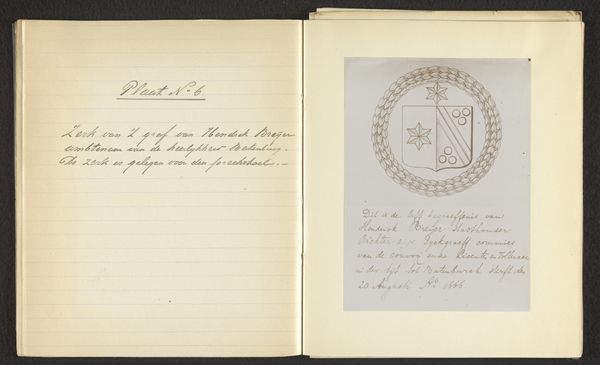 Plaat No 6.
Zerk van 't graf van Hendrik Breijer
ambtman van de heerlykheid Batenburg.
De zerk is gelegen voor den preekstoel. —
Dit is de Erff begraeffenis van
Hendrick Breijer Stadthouder
Richter e
van de convoij ende Licenten en Tollenaer
in der tijt tot Batenburch sterft den
20 Augusti Ao 1666